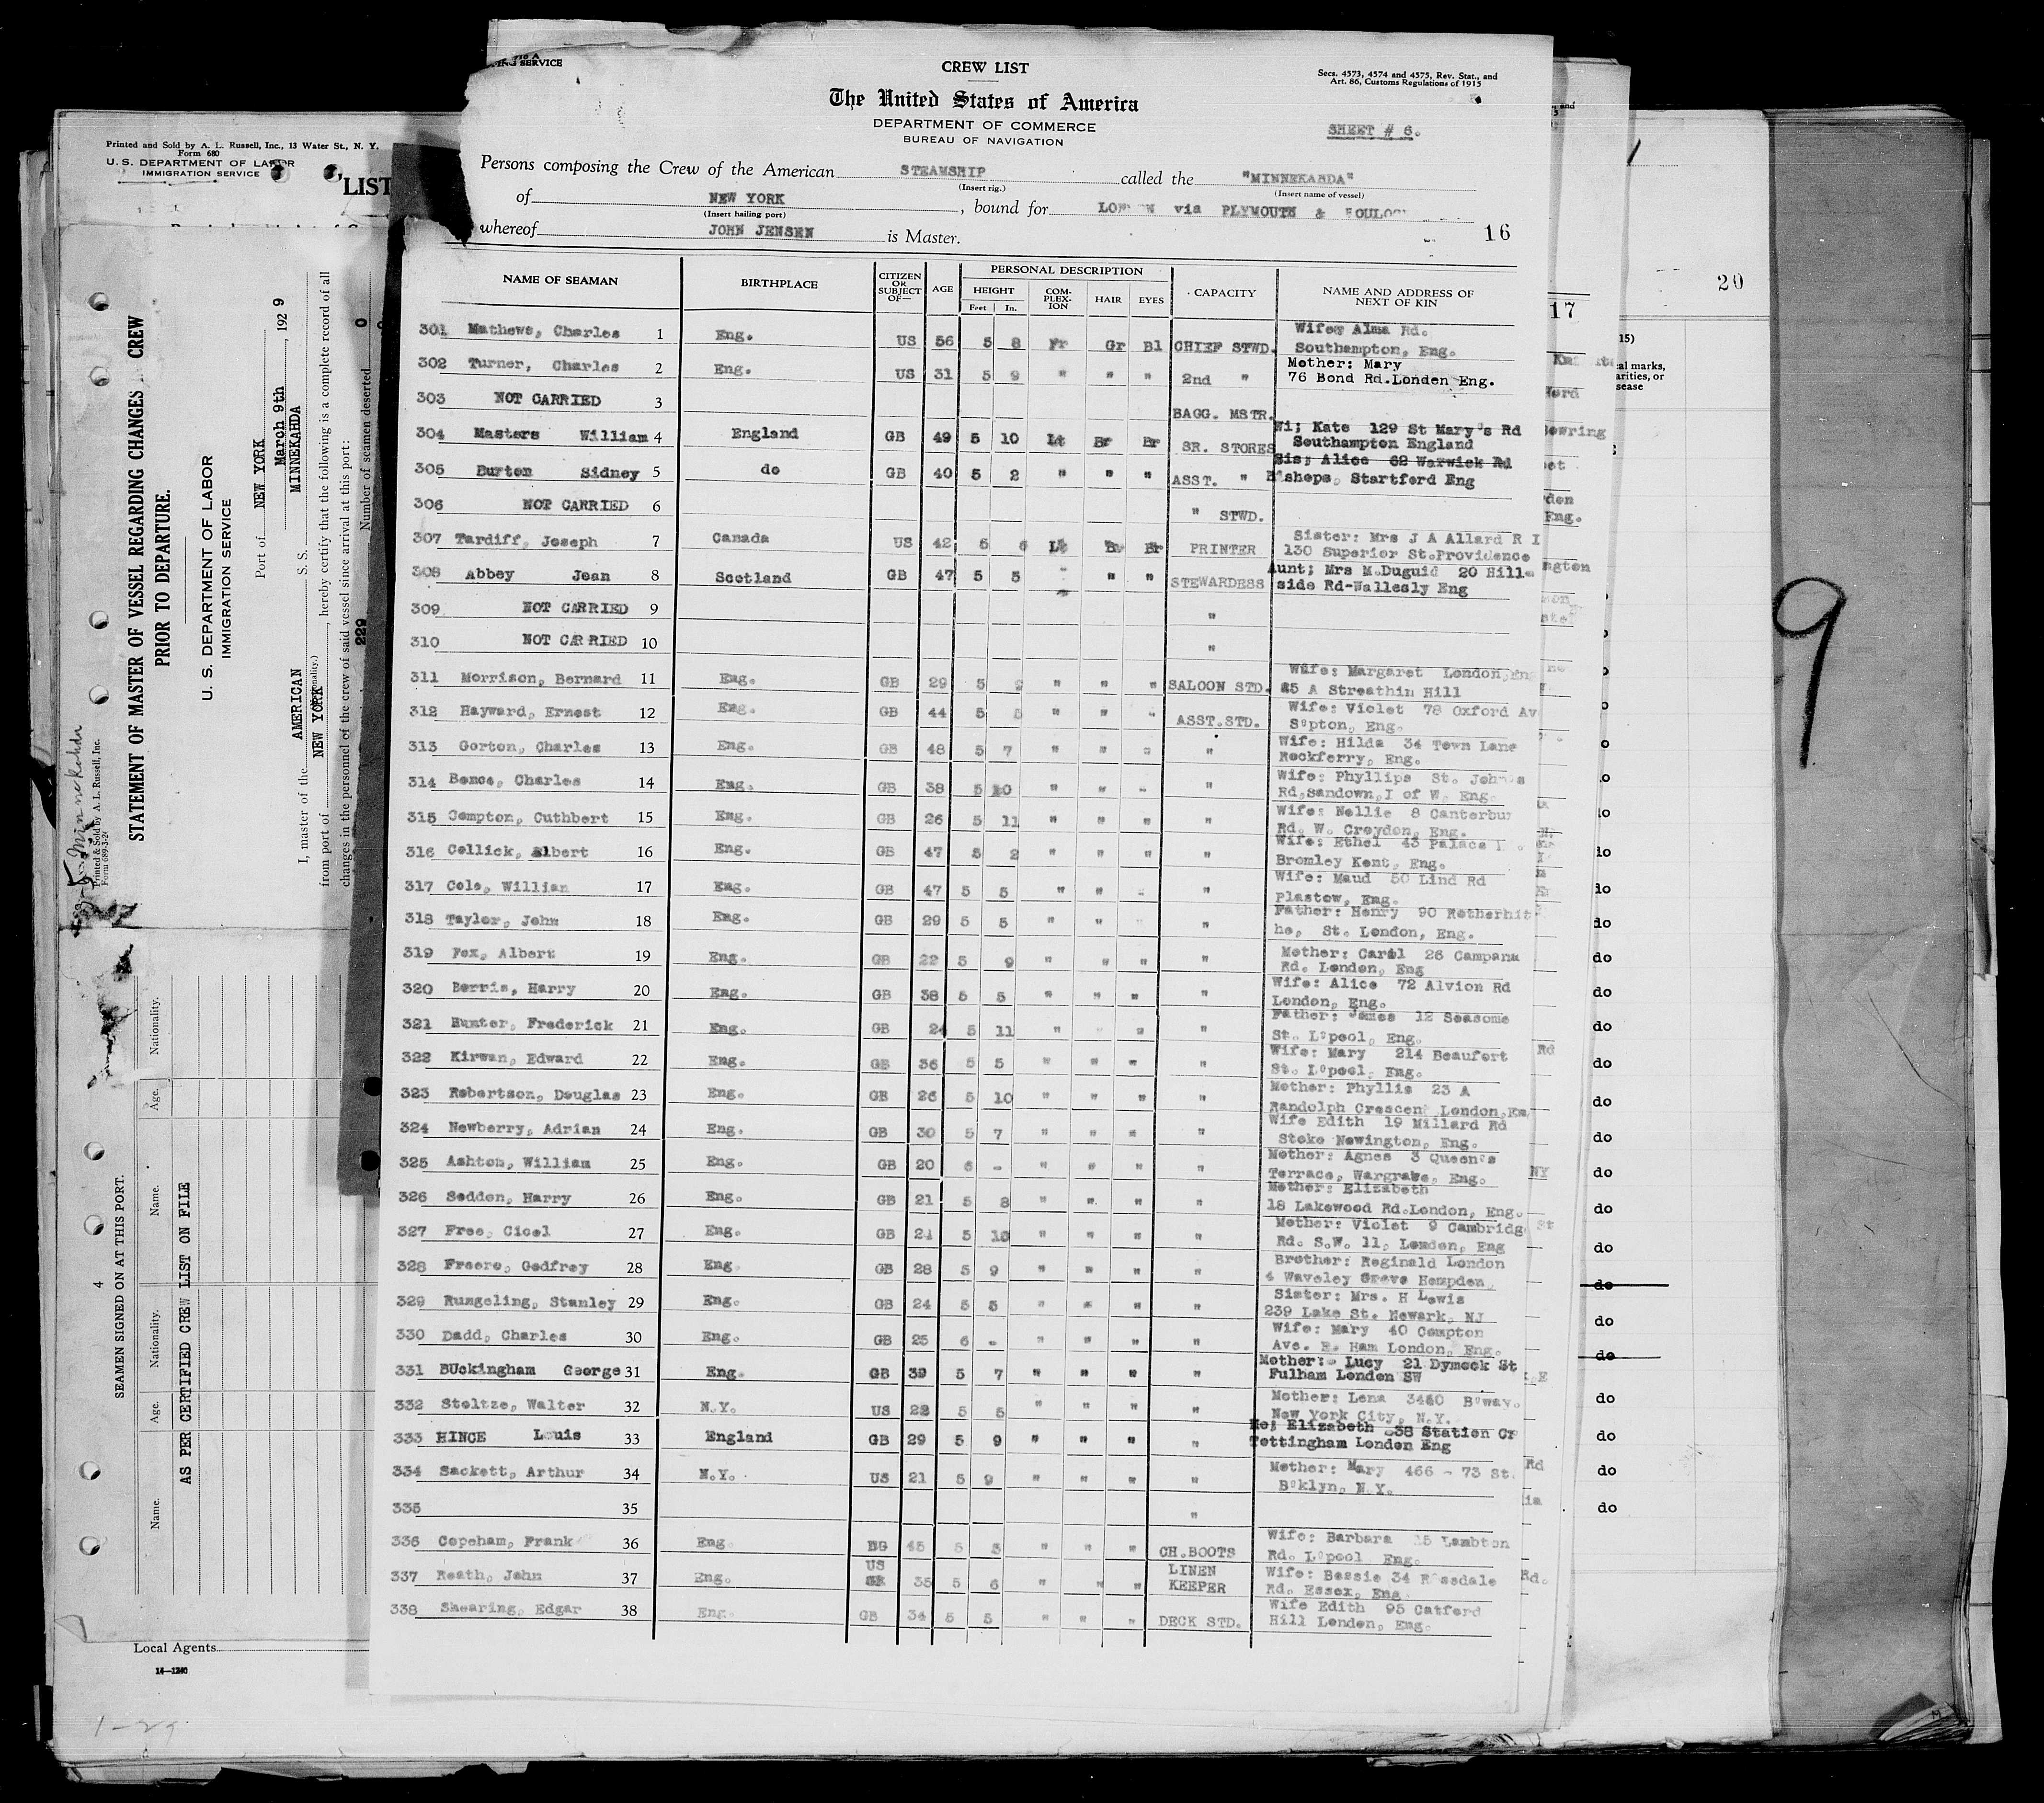 CREW LIST
The United States of America
DEPARTMENT OF COMMERCE
BUREAU OF NAVIGATION
Secs. 4573, 4574 and 4575, Rev. Stat., and
Art. 86, Customs Regulations of 1915
SHEET # 6.
Persons composing the Crew of the American STEAMSHIP called the "MINNEKAHDA"
(Insert rig.) (Insert name of vessel)
of NEW YORK, bound for via PLYMOUTH &
(Insert hailing port)
whereof JOHN JENSEN is Master.
16
NAME OF SEAMAN BIRTHPLACE CITIZEN OR SUBJECT OF— AGE PERSONAL DESCRIPTION CAPACITY NAME AND ADDRESS OF NEXT OF KIN
HEIGHT COM-PLEX-ION HAIR EYES
Feet In.
301 Mathews, Charles 1 Eng. US 56 5 8 Fr Gr Bl CHIEF STWD. Wife: Alma Rd.
Southampton, Eng.
302 Turner, Charles 2 Eng. US 31 5 9 " " " 2nd " Mother: Mary
76 Bond Rd.London Eng.
303 NOT CARRIED 3 BAGG. MSTR.
304 Masters William 4 England GB 49 5 10 Lt Br Br SR. STORES Wi; Kate 129 St Mary's Rd
Southampton England
305 Burton Sidney 5 do GB 40 5 2 " " " ASST. " Sis; Alice 62 Warwick Rd
Bishops, Startford Eng
306 NOT CARRIED 6 " STWD.
307 Tardiff, Joseph 7 Canada US 42 5 6 Lt Br Br PRINTER Sister: Mrs J A Allard R I
130 Superior St.Providence
308 Abbey Jean 8 Scotland GB 47 5 5 " " " STEWARDESS Aunt; Mrs M.Duguid 20 Hill-
side Rd-Wallesly Eng
309 NOT CARRIED 9 "
310 NOT CARRIED 10 "
311 Morrison, Bernard 11 Eng. GB 29 5 9 " " " SALOON STD. Wife: Margaret London,Eng
25 A Streathin Hill
312 Hayward, Ernest 12 Eng. GB 44 5 5 " " " ASST.STD. Wife: Violet 78 Oxford Av
S'pton, Eng.
313 Gorton, Charles 13 Eng. GB 48 5 7 " " " " Wife: Hilda 34 Town Lane
Rockferry, Eng.
314 Bence, Charles 14 Eng. GB 38 5 10 " " " " Wife: Phyllips St. John's
Rd,Sandown,I of W. Eng.
315 Compton, Cuthbert 15 Eng. GB 26 5 11 " " " " Wife: Nellie 8 Canterbur
Rd. W. Croydon, Eng.
316 Collick, Albert 16 Eng. GB 47 5 2 " " " " Wife: Ethel 43 Palace
Bromley Kent, Eng.
317 Cole, Willian 17 Eng. GB 47 5 5 " " " " Wife: Maud 50 Lind Rd
Plastow, Eng.
318 Taylor, John 18 Eng. GB 29 5 5 " " " " Father: Henry 90 Rotherhit
he, St. London, Eng.
319 Fox, Albert 19 Eng. GB 22 5 9 " " " " Mother: Carol 26 Campana
Rd. London, Eng
320 Berris, Harry 20 Eng. GB 38 5 5 " " " " Wife: Alice 72 Alvion Rd
London, Eng.
321 Hunter, Frederick 21 Eng. GB 24 5 11 " " " " Father: James 12 Seasome
St. L'pool, Eng.
322 Kirwan, Edward 22 Eng. GB 36 5 5 " " " " Wife: Mary 214 Beaufort
St. L'pool, Eng.
323 Robertson, Douglas 23 Eng. GB 26 5 10 " " " " Mother: Phyllis 23 A
Randolph Crescent London,En
324 Newberry, Adrian 24 Eng. GB 30 5 7 " " " " Wife Edith 19 Millard Rd
Stoke Newington, Eng.
325 Ashton, William 25 Eng. GB 20 6 - " " " " Mother: Agnes 3 Queen's
Terrace, Wargrave, Eng.
326 Seddon, Harry 26 Eng. GB 21 5 8 " " " " Mother: Elizabeth
18 Lakewood Rd.London, Eng.
327 Free, Cicel 27 Eng. GB 24 5 10 " " " " Mother: Violet 9 Cambridg
Rd. S.W. 11, London, Eng
328 Freere, Godfrey 28 Eng. GB 28 5 9 " " " " Brother: Reginald London
4 Waveley Grove Hempden,
329 Rungeling, Stanley 29 Eng. GB 24 5 5 " " " " Sister: Mrs. H Lewis
239 Lake St. Newark, NJ
330 Dadd, Charles 30 Eng. GB 25 6 - " " " " Wife: Mary 40 Compton
Ave. E. Ham London, Eng.
331 BUckingham George 31 Eng. GB 39 5 7 " " " " Mother:- Lucy 21 Dymock St
Fulham London SW
332 Stoltze, Walter 32 N.Y. US 22 5 5 " " " " Mother: Lena 3440 B'way.
New York City, N.Y.
333 HINCE Louis 33 England GB 29 5 9 " " " " Mo; Elizabeth 538 Station Cr
Tottingham London Eng
334 Sackett, Arthur 34 N.Y. US 21 5 9 " " " " Mother: Mary 466 - 73 St.
B'klyn, N.Y.
335 35 "
336 Copeham, Frank 36 Eng. BG 45 5 5 " " " CH.BOOTS Wife: Barbara 25 Lambton
Rd. L'pool Eng.
337 Reath, John 37 Eng. US 35 5 6 " " " LINEN KEEPER Wife: Bessie 34 Rosedale
Rd. Essex, Eng.
338 Shearing, Edgar 38 Eng. GB 34 5 5 " " " DECK STD. Wife Edith 95 Catford
Hill London, Eng.
Printed and Sold by A. L. Russell, Inc., 13 Water St., N. Y.
Form 680
U. S. DEPARTMENT OF LABOR
IMMIGRATION SERVICE
LIST
STATEMENT OF MASTER OF VESSEL REGARDING CHANGES CREW
PRIOR TO DEPARTURE.
U. S. DEPARTMENT OF LABOR
IMMIGRATION SERVICE
Port of NEW YORK March 9th, 1929
I, master of the AMERICAN S. S. MINNEKAHDA
from port of NEW YORK, hereby certify that the following is a complete record of all
changes in the personnel of the crew of said vessel since arrival at this port:
Number of seamen deserted 0
229
Minnekahda
Printed & Sold by A. L. Russell, Inc.
4
SEAMEN SIGNED ON AT THIS PORT.
Name. Age. Nationality. Name. Age. Nationality.
AS PER CERTIFIED CREW LIST ON FILE
Local Agents
14—1240
1-29
17
20
do
do
do
do
do
do
do
do
do
do
do
do
do
do
do
do
9